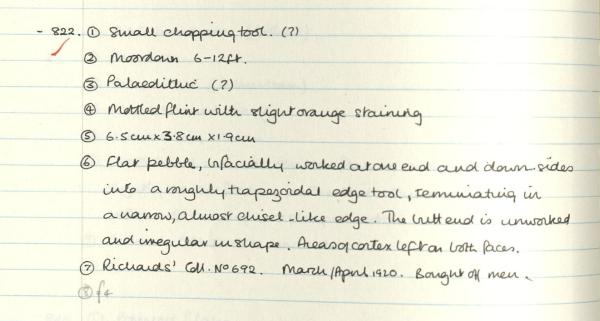 - 822. ① Small chopping tool. (?)
② Moordown 6-12ft.
③ Palaeolithic (?)
④ Mottled flint with slight orange staining
⑤ 6.5cm x 3.8cm x 1.9cm
⑥ Flat pebble, bifacially worked at one end and down sides
into a roughly trapezoidal edge tool, terminating in
a narrow, almost chisel-like edge. The butt end is unworked
and irregular in shape. Areas of cortex left on both faces.
⑦ Richards' Coll. No 692. March/April 1920. Bought off men.
⑧ f4